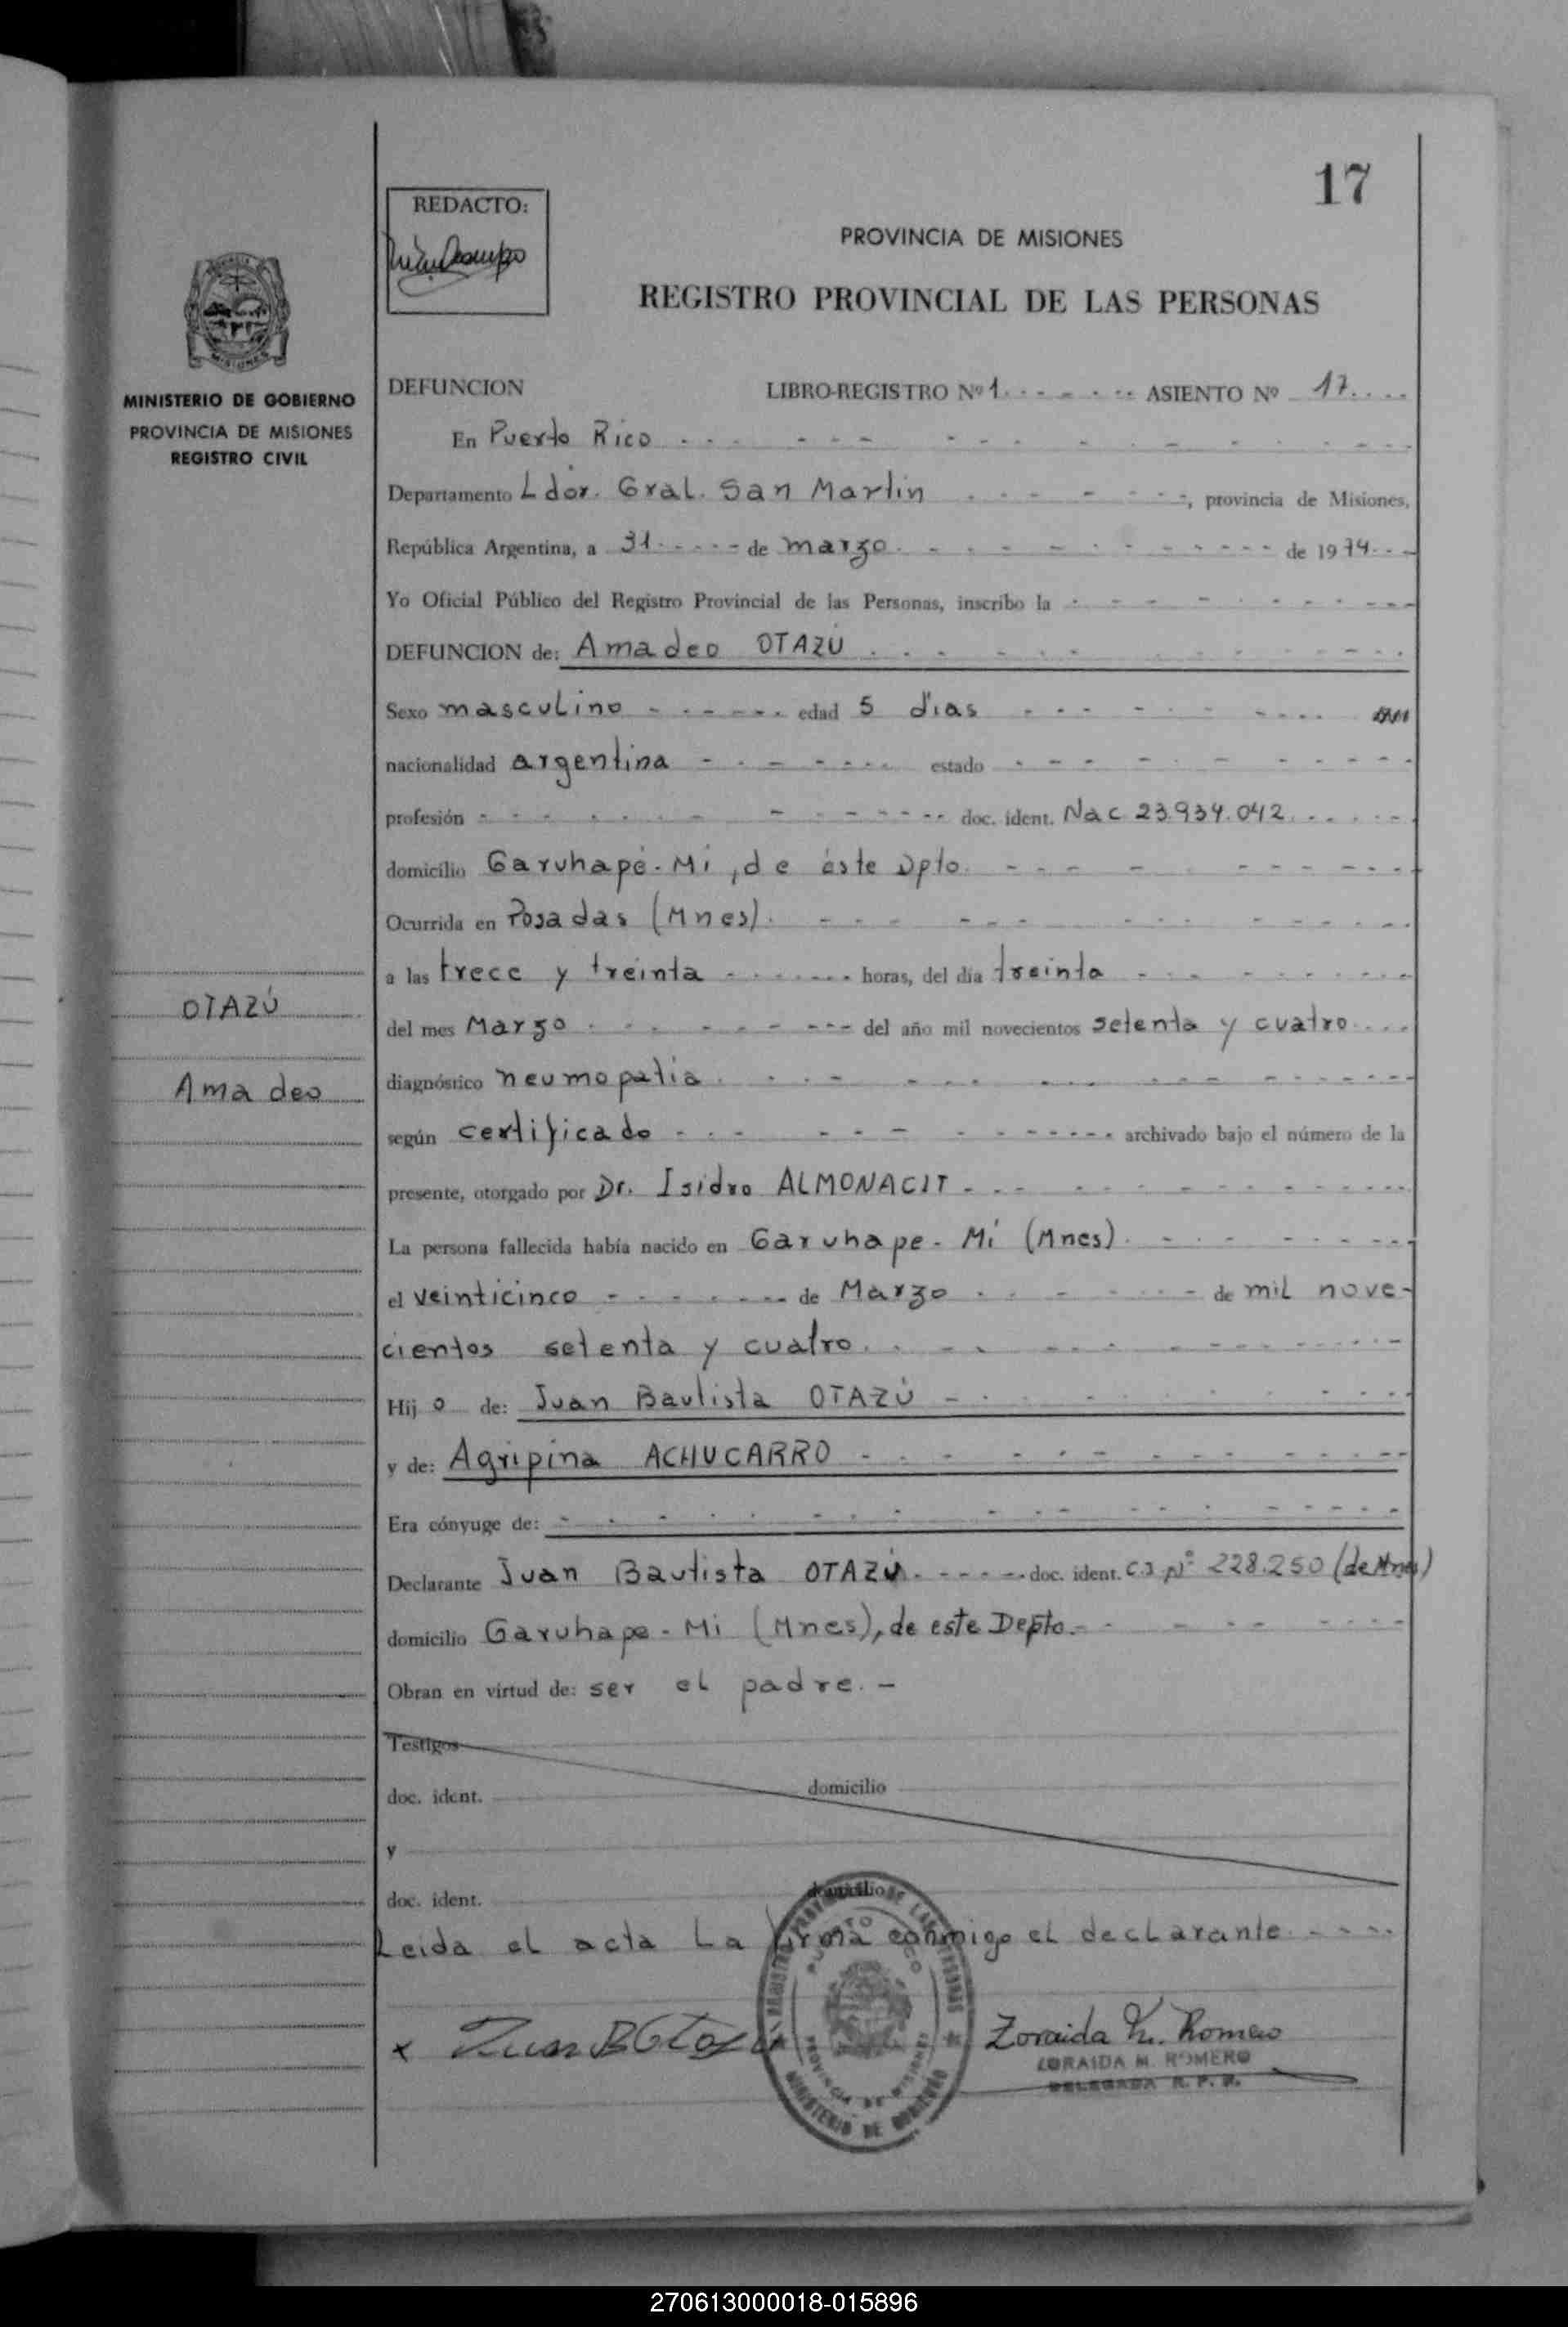 17
REDACTO:
PROVINCIA DE MISIONES
REGISTRO PROVINCIAL DE LAS PERSONAS
MINISTERIO DE GOBIERNO
PROVINCIA DE MISIONES
REGISTRO CIVIL
DEFUNCION LIBRO-REGISTRO Nº 1 ASIENTO Nº 17
En Puerto Rico
Departamento Ldor. Gral. San Martín, provincia de Misiones,
República Argentina, a 31 de marzo de 1974
Yo Oficial Público del Registro Provincial de las Personas, inscribo la
DEFUNCION de: Amadeo OTAZÚ
Sexo masculino edad 5 días
nacionalidad argentina estado
profesión doc. ident. Nac 23.934.042
domicilio Garuhapé-Mí, de éste Dpto.
Ocurrida en Posadas (Mnes).
a las trece y treinta horas, del día treinta
del mes Marzo del año mil novecientos setenta y cuatro
diagnóstico neumopatía
según certificado archivado bajo el número de la
presente, otorgado por Dr. Isidro ALMONACIT
La persona fallecida había nacido en Garuhape-Mí (Mnes)
el veinticinco de Marzo de mil nove-
cientos setenta y cuatro.
Hijo de: Juan Bautista OTAZÚ
y de: Agripina ACHUCARRO
Era cónyuge de:
Declarante Juan Bautista OTAZÚ doc. ident. C.I Nº 228.250 (de Mnes)
domicilio Garuhape-Mi (Mnes), de este Depto.-
Obran en virtud de: ser el padre.-
Testigos
doc. ident. domicilio
y
doc. ident. domicilio
Leida el acta la firma conmigo el declarante
OTAZÚ
Amadeo
x Juan B Otazu
Zoraida M. Romero
ZORAIDA M. ROMERO
DELEGADA R. P. P.
PUERTO RICO
PROVINCIA DE MISIONES
MINISTERIO DE GOBIERNO
270613000018-015896